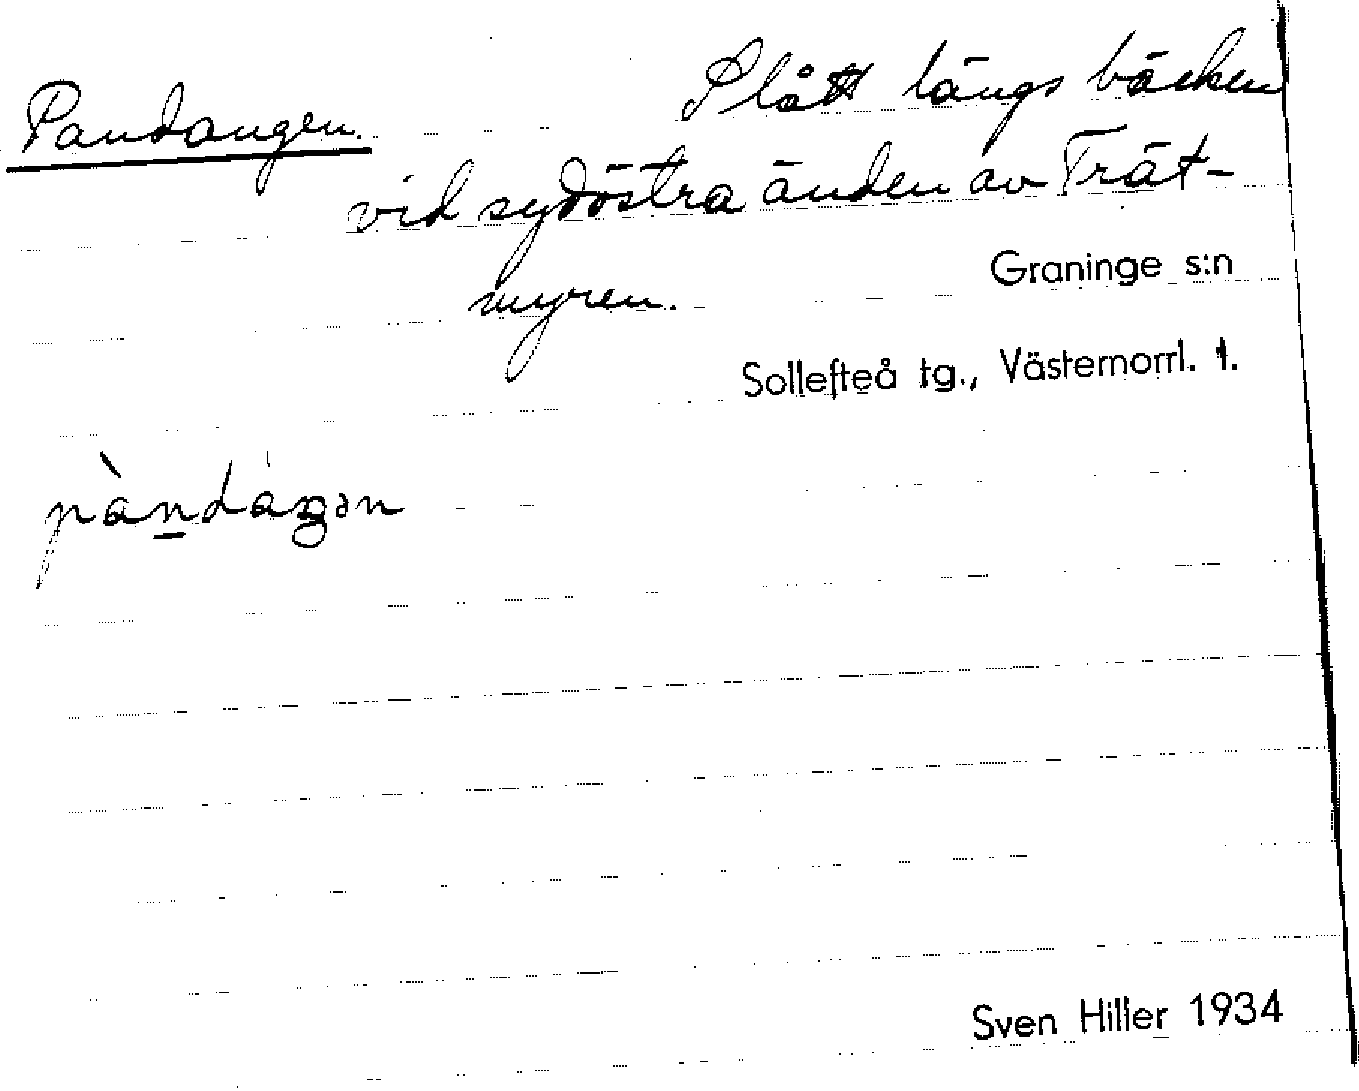 Pandangen. Slått längs bäcken
vid sydöstra änden av Trät-
myren.
Graninge s:n
Sollefteå tg., Västernorrl. l.
Sven Hiller 1934